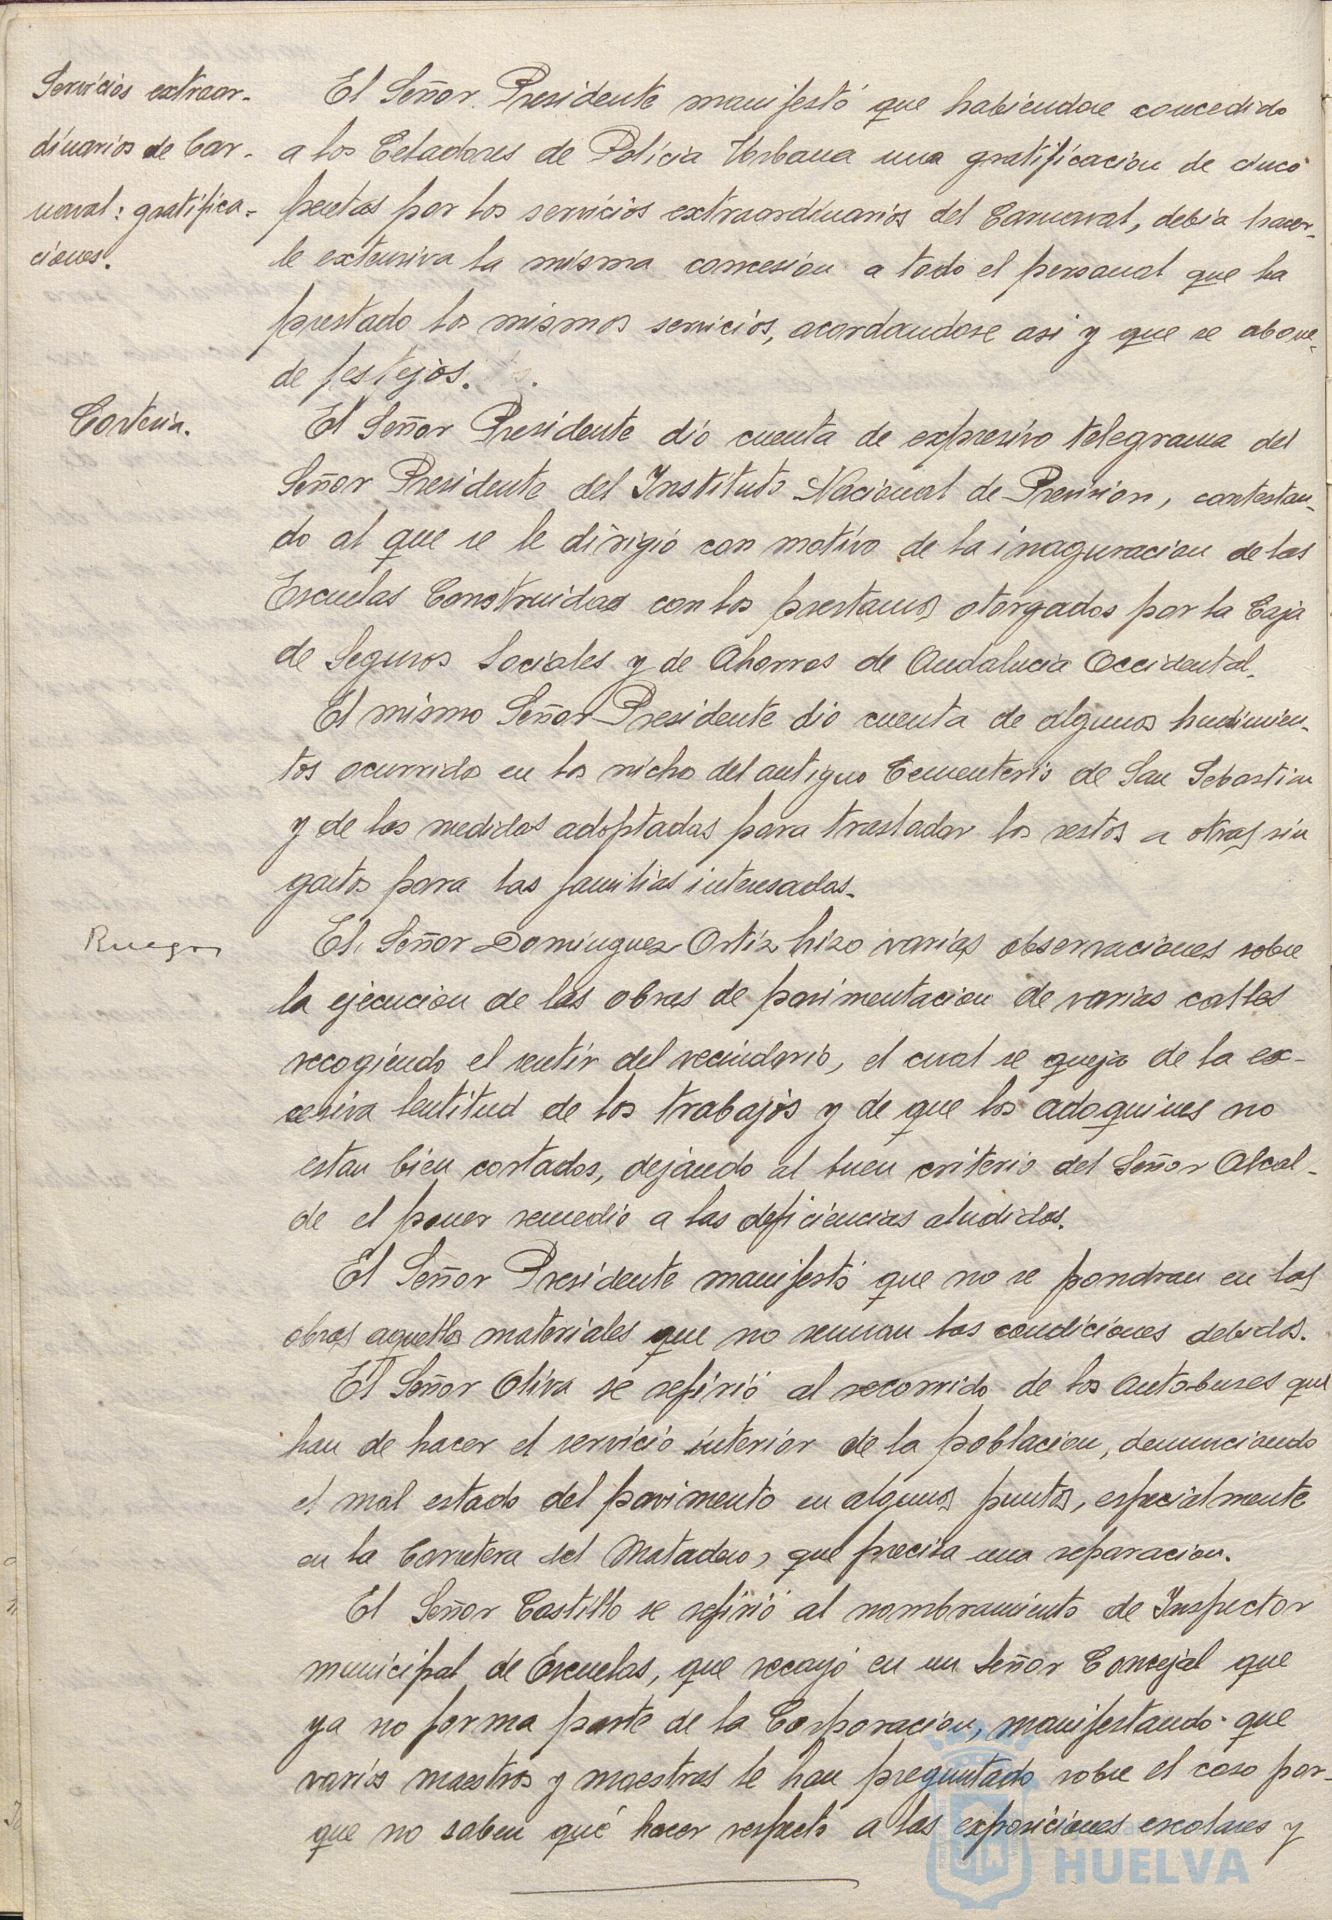 Servicios extraor-
dinarios de Car-
naval: gratifica-
ciones.
El Señor Presidente manifestó que habiendose concedido
a los Celadores de Policia Urbana una gratificacion de cinco
pesetas por los servicios extraordinarios del Carnaval, debia hacer-
le extensiva la misma concesion a todo el personal que ha
prestado los mismos servicios, acordandose asi y que se abone
de festejos.
Cortesia.
El Señor Presidente dio cuenta de expresivo telegrama del
Señor Presidente del Instituto Nacional de Prevision, contestan-
do al que se le dirigió con motivo de la inaguracion de las
Escuelas Construidas con los prestamos otorgados por la Caja
de Seguros Sociales y de Ahorros de Andalucia Occidental.
El mismo Señor Presidente dio cuenta de algunos hundimien-
tos ocurridos en los nichos del antiguo Cementerio de San Sebastian
y de las medidas adoptadas para trasladar los restos a otros sin
gastos para las familias interesadas.
Ruegos
El Señor Dominguez Ortiz hizo varias observaciones sobre
la ejecucion de las obras de pavimentacion de varias calles
recogiendo el sentir del vecindario, el cual se queja de la ex-
cesiva lentitud de los trabajos y de que los adoquines no
estan bien cortados, dejando al buen criterio del Señor Alcal-
de el poner remedio a las deficiencias aludidas.
El Señor Presidente manifestó que no se pondran en las
obras aquellos materiales que no reunan las condiciones debidas.
El Señor Oliva se refirió al recorrido de los autobuses que
han de hacer el servicio interior de la poblacion, denunciando
el mal estado del pavimento en algunos puntos, especialmente
en la Carretera del Matadero, que precisa una reparacion.
El Señor Castillo se refirió al nombramiento de Inspector
municipal de Escuelas, que recayó en un Señor Concejal que
ya no forma parte de la Corporacion, manifestando que
varios maestros y maestras le han preguntado sobre el caso por-
que no saben qué hacer respecto a las exposiciones escolares y
HUELVA